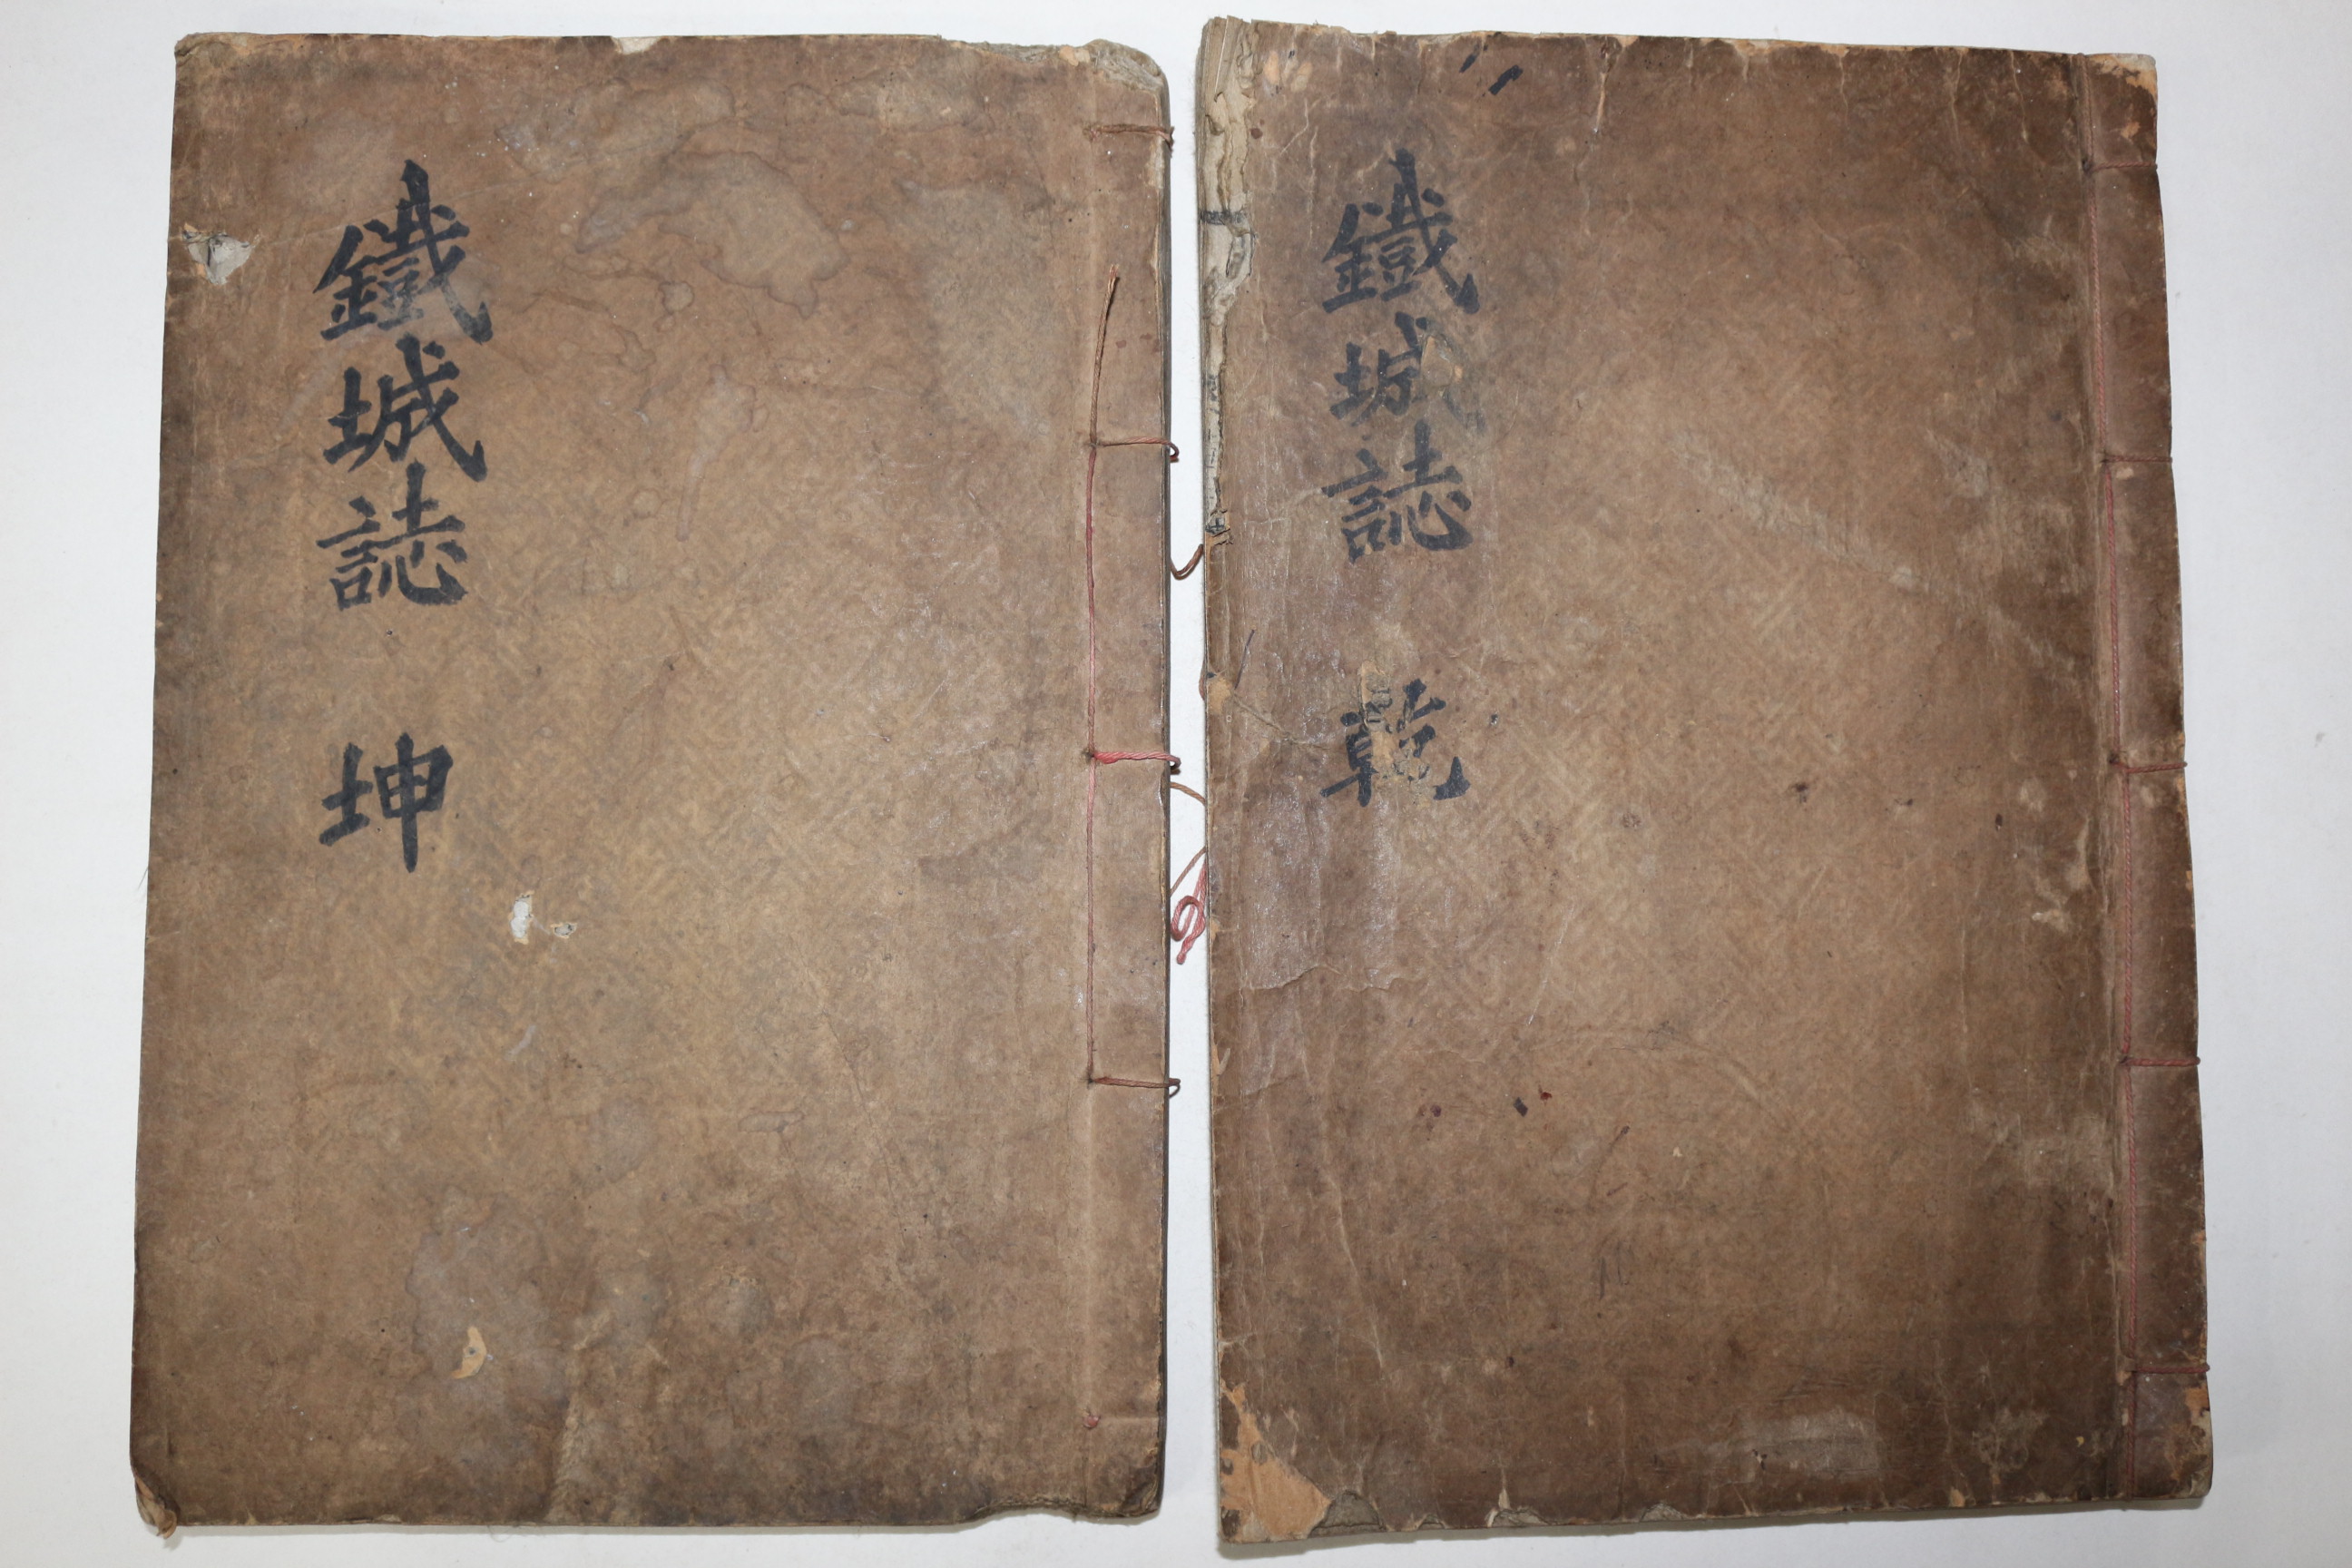 鐵城誌 乾
鐵城誌 坤